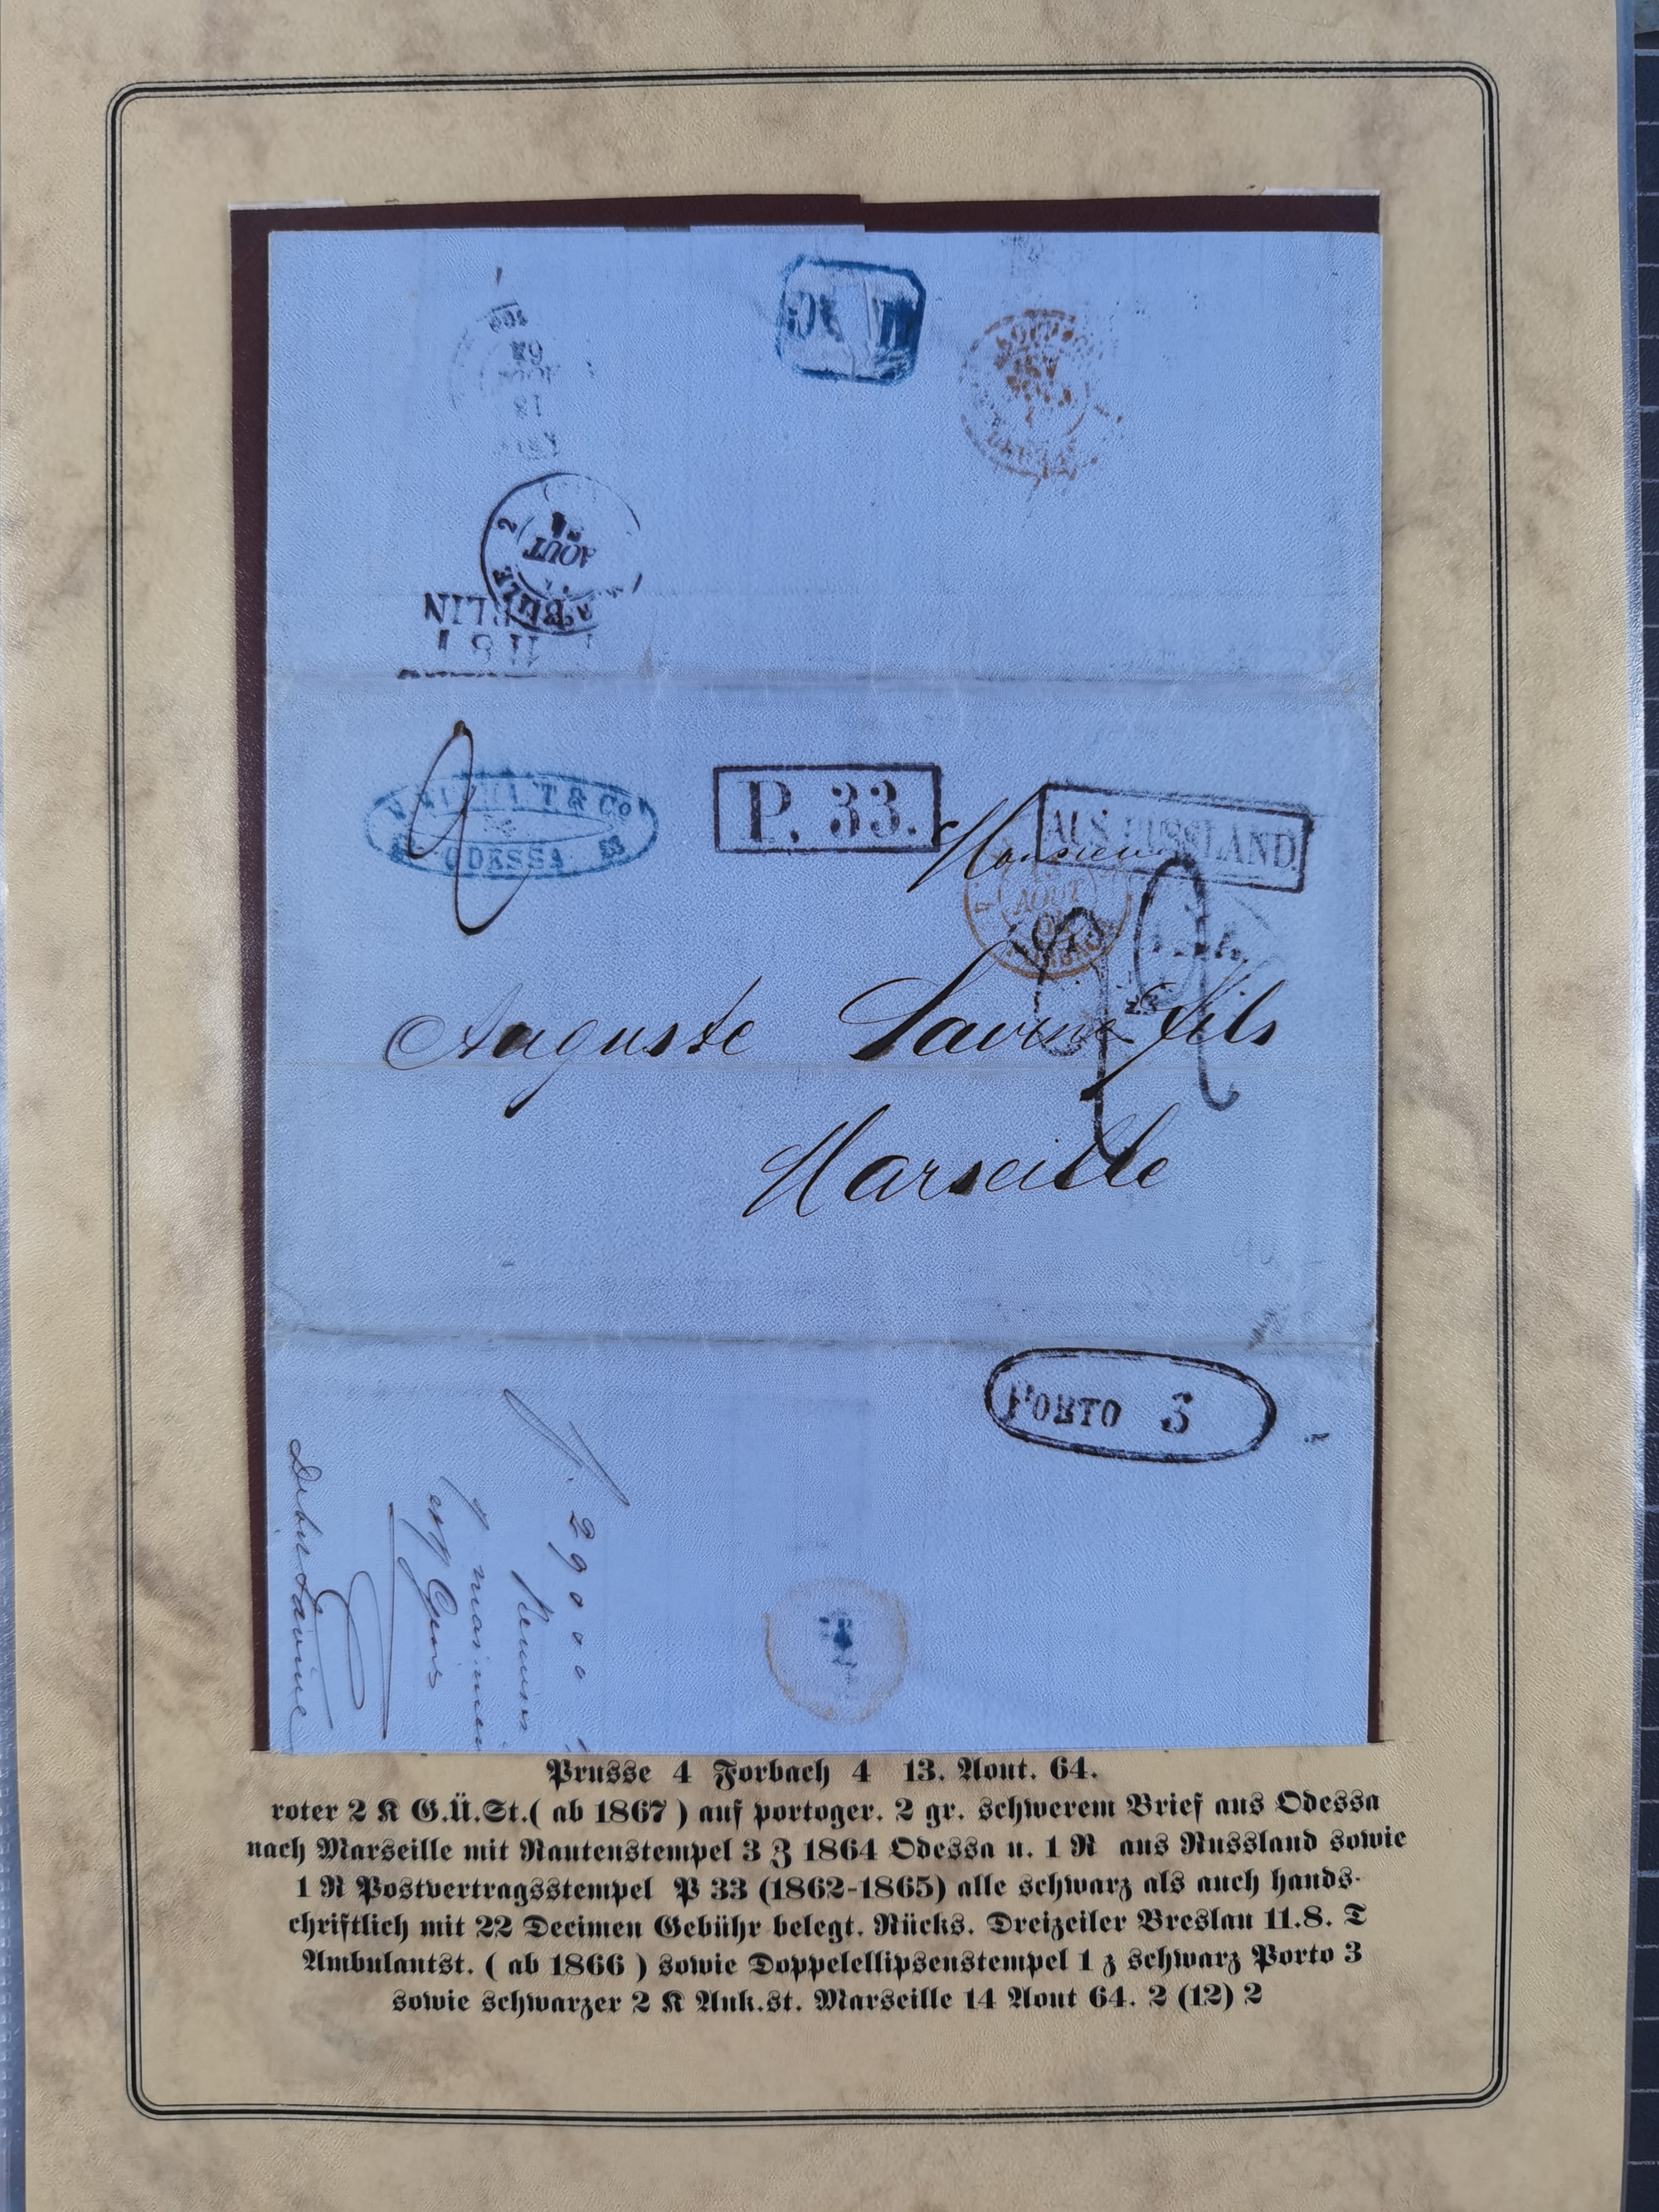 AOUT
BERLIN
11 8
T & Co
ODESSA
P. 33.
AUS RUSSLAND
Monsieur
AOUT
Auguste Savine fils
Marseille
PORTO 3
f. 29000
Debit Savine
Prusse 4 Forbach 4 13. Aout. 64.
roter 2 K G.Ü.St.( ab 1867 ) auf portoger. 2 gr. schwerem Brief aus Odessa
nach Marseille mit Rautenstempel 3 Z 1864 Odessa u. 1 R aus Russland sowie
1 R Postvertragsstempel P 33 (1862-1865) alle schwarz als auch hands-
chriftlich mit 22 Decimen Gebühr belegt. Rücks. Dreizeiler Breslau 11.8. T
Ambulantst. ( ab 1866 ) sowie Doppelellipsenstempel 1 z schwarz Porto 3
sowie schwarzer 2 K Ank.st. Marseille 14 Aout 64. 2 (12) 2